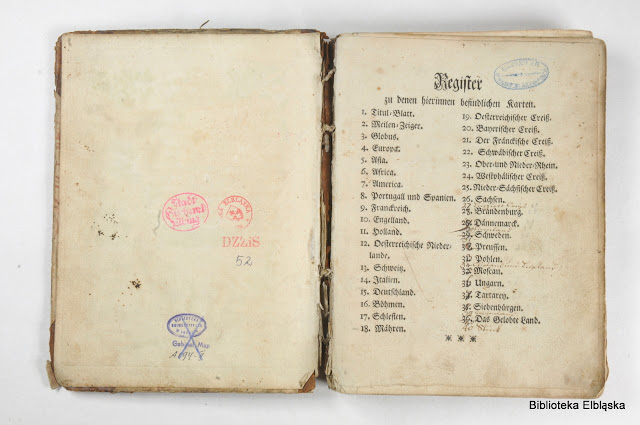 DZZiS
52
Register
zu denen hierinnen befindlichen Karten.
1. Titul-Blatt.
2. Meilen-Zeiger.
3. Globus.
4. Europa.
5. Asia.
6. Africa.
7. America.
8. Portugall und Spanien.
9. Franckreich.
10. Engelland.
11. Holland.
12. Oesterreichische Nieder-
lande.
13. Schweitz.
14. Italien.
15. Deutschland.
16. Böhmen.
17. Schlesien.
18. Mähren.
19. Oesterreichischer Creiß.
20. Bayerischer Creiß.
21. Der Fränckische Creiß.
22. Schwäbischer Creiß.
23. Ober-und Nieder-Rhein.
24. Westphälischer Creiß.
25. Nieder-Sächsischer Creiß.
26. Sachsen.
Brandenburg.
Dännemarck.
Schweden.
Preussen.
Pohlen.
Moscau.
Ungarn.
Tartarey.
Siebenbürgen.
Das Gelobte Land.
Biblioteka Elbląska